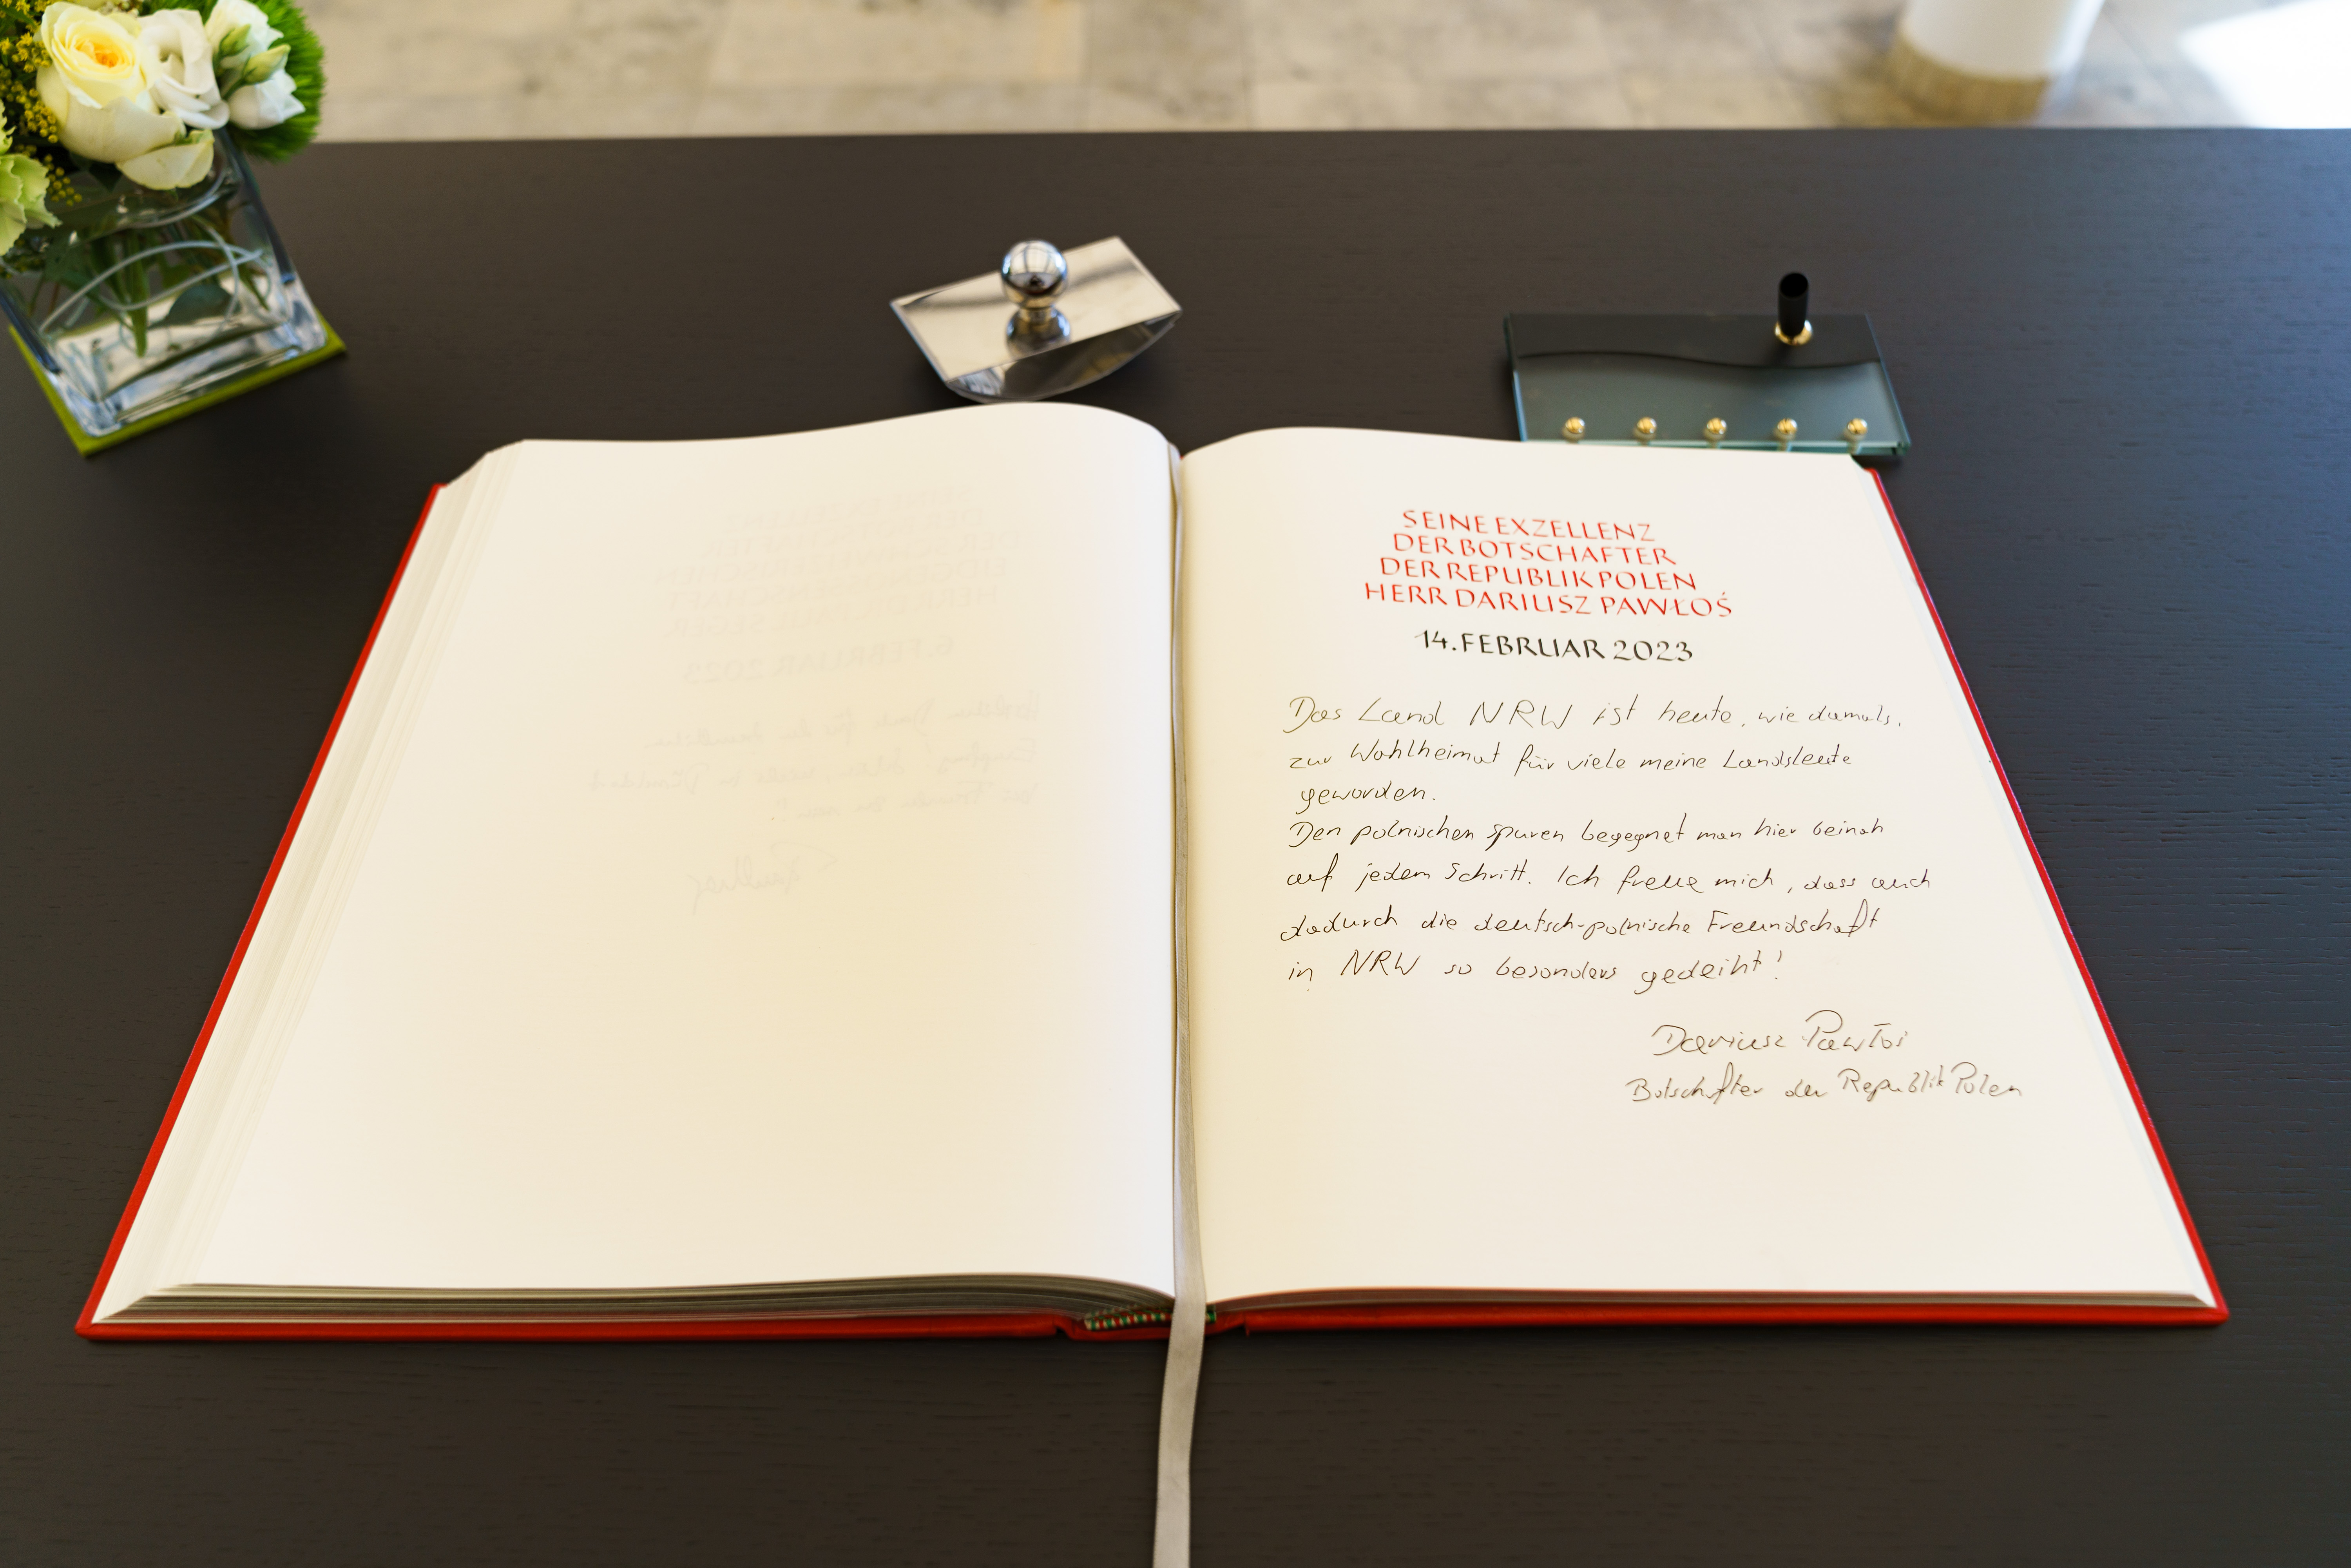 SEINE EXZELLENZ
DER BOTSCHAFTER
DER REPUBLIK POLEN
HERR DARIUSZ PAWŁOŚ
14. FEBRUAR 2023
Das Land NRW ist heute, wie damals,
zur Wahlheimat für viele meine Landsleute
geworden.
Den polnischen Spuren begegnet man hier beinah
auf jedem Schritt. Ich freue mich, dass auch
dadurch die deutsch-polnische Freundschaft
in NRW so besonders gedeiht!
Dariusz Pawłoś
Botschafter der Republik Polen